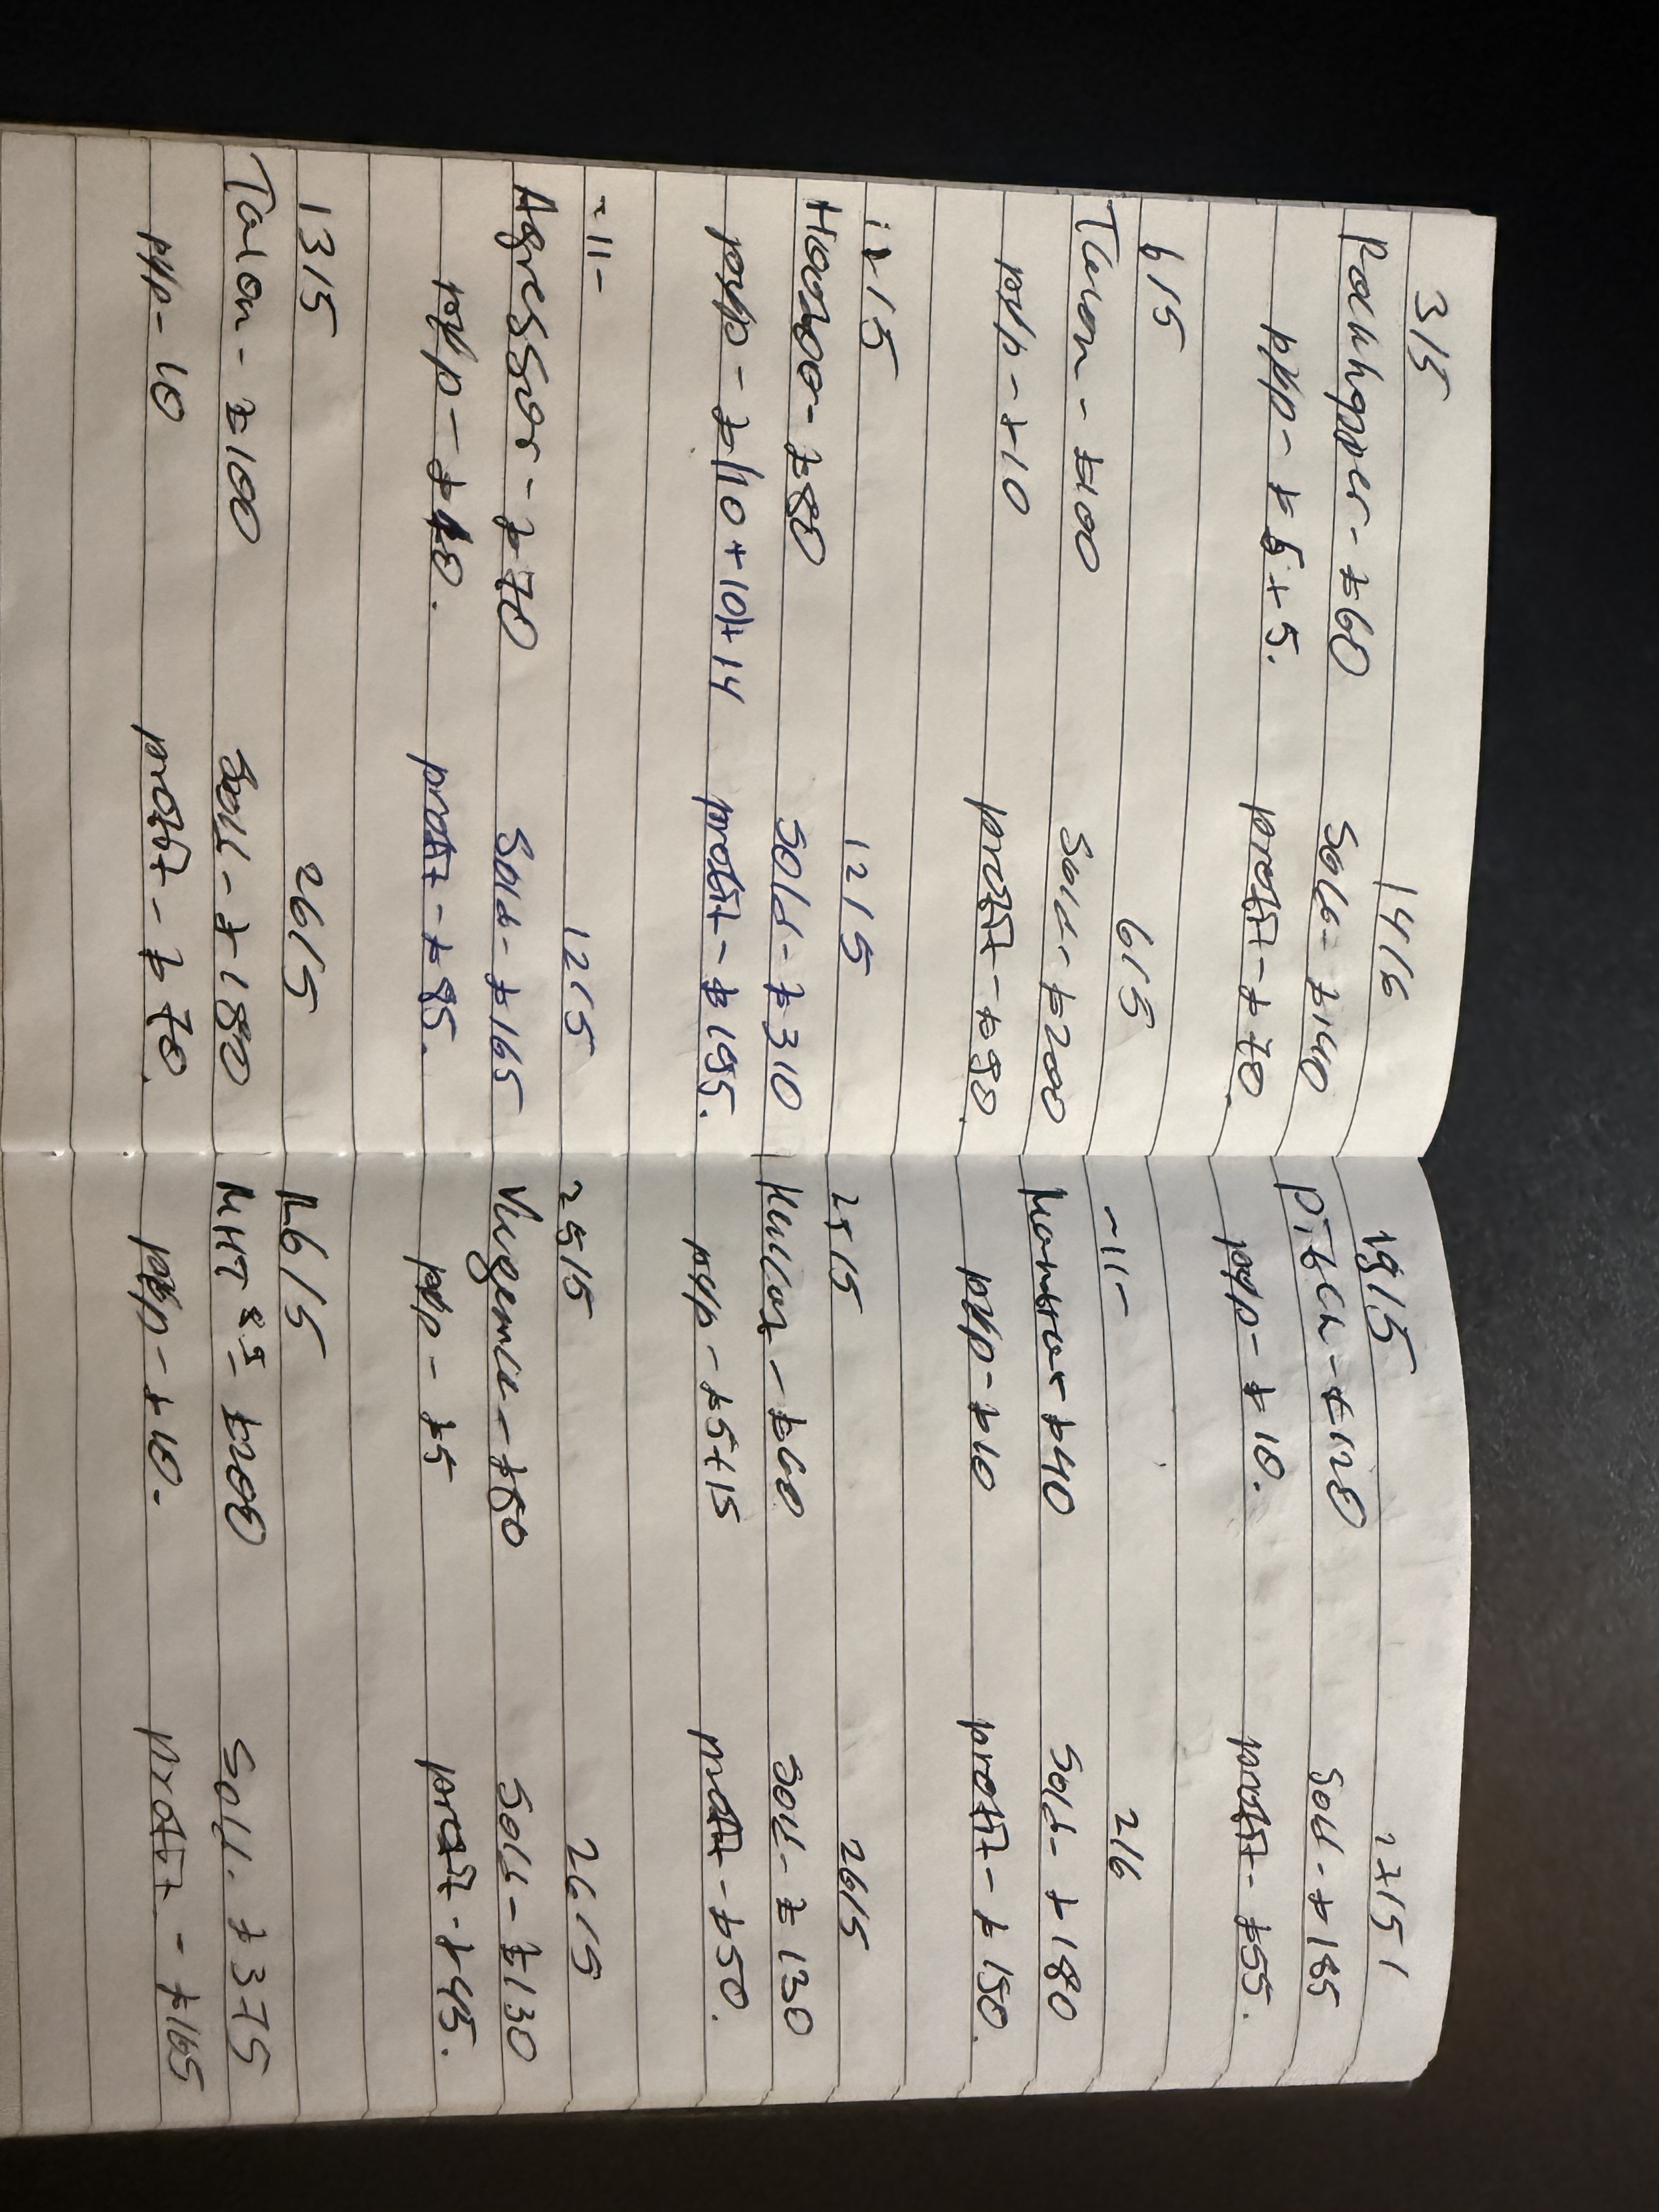 3/5 14/6
Rockhopper - £60 Sold - £140
p/p - £5 + 5. profit - £70.
6/5 6/5
Talon - £100 Sold - £200
p/p - £10 profit - £90.
12/5 12/5
Hoo700 - £80 Sold - £310
p/p - £(10+10)+14 profit - £195.
-11- 12/5
Agressor - £70 Sold - £165
p/p - £10. profit - £85.
13/5 26/5
Talon - £100 Sold - £180
p/p - 10 profit - £70.
19/5 27/5
Pitch - £120 Sold - £185
p/p - £10. profit - £55.
-11- 2/6
£40 Sold - £180
p/p - £10 profit - £150.
25/5 26/5
£60 Sold - £130
p/p - £5+15 profit - £50.
25/5 26/5
Vengeance - £50 Sold - £130
p/p - £5 profit - £45.
26/5
£200 Sold - £375
p/p - £10. profit - £165